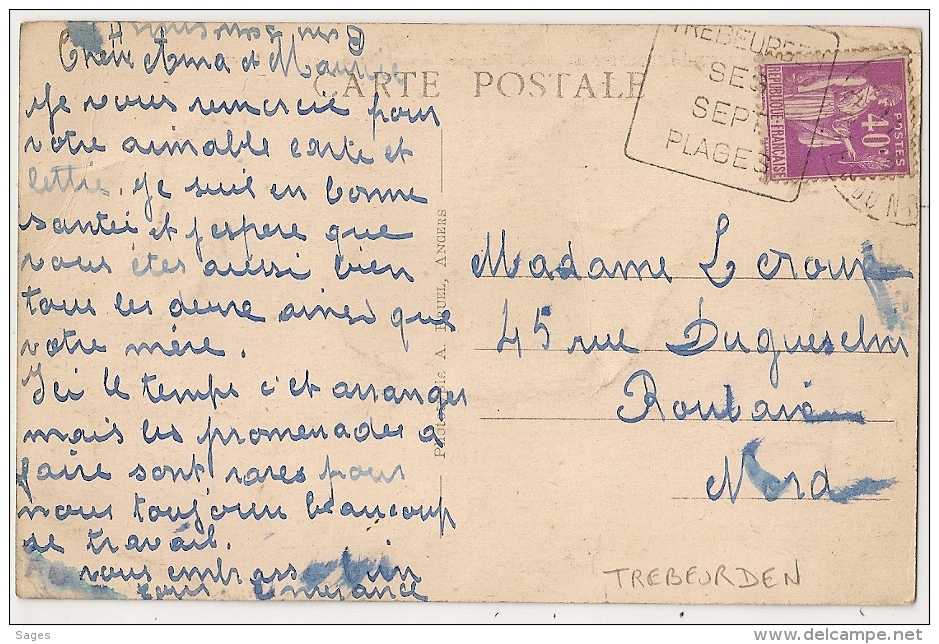 Chère Anna et Maurice
Je vous remercie pour
votre aimable carte et
lettre. Je suis en bonne
santei et j'espere que
vous êtes aussi bien
tous les deux ainsi que
votre mère.
Ici le temps c'et arranger
mais les promenades a
faire sont rares pour
nous toujours beaucoup
de travail.
vous embrasse bien
CARTE POSTALE
ANGERS
TREBEURDEN
SES
SEPT
PLAGES
REPUBLIQUE-FRANÇAISE
POSTES
40c
Madame Leroux
45 rue Duguesclin
Roubaix
Nord
TREBEURDEN
Sages
delcampe.net